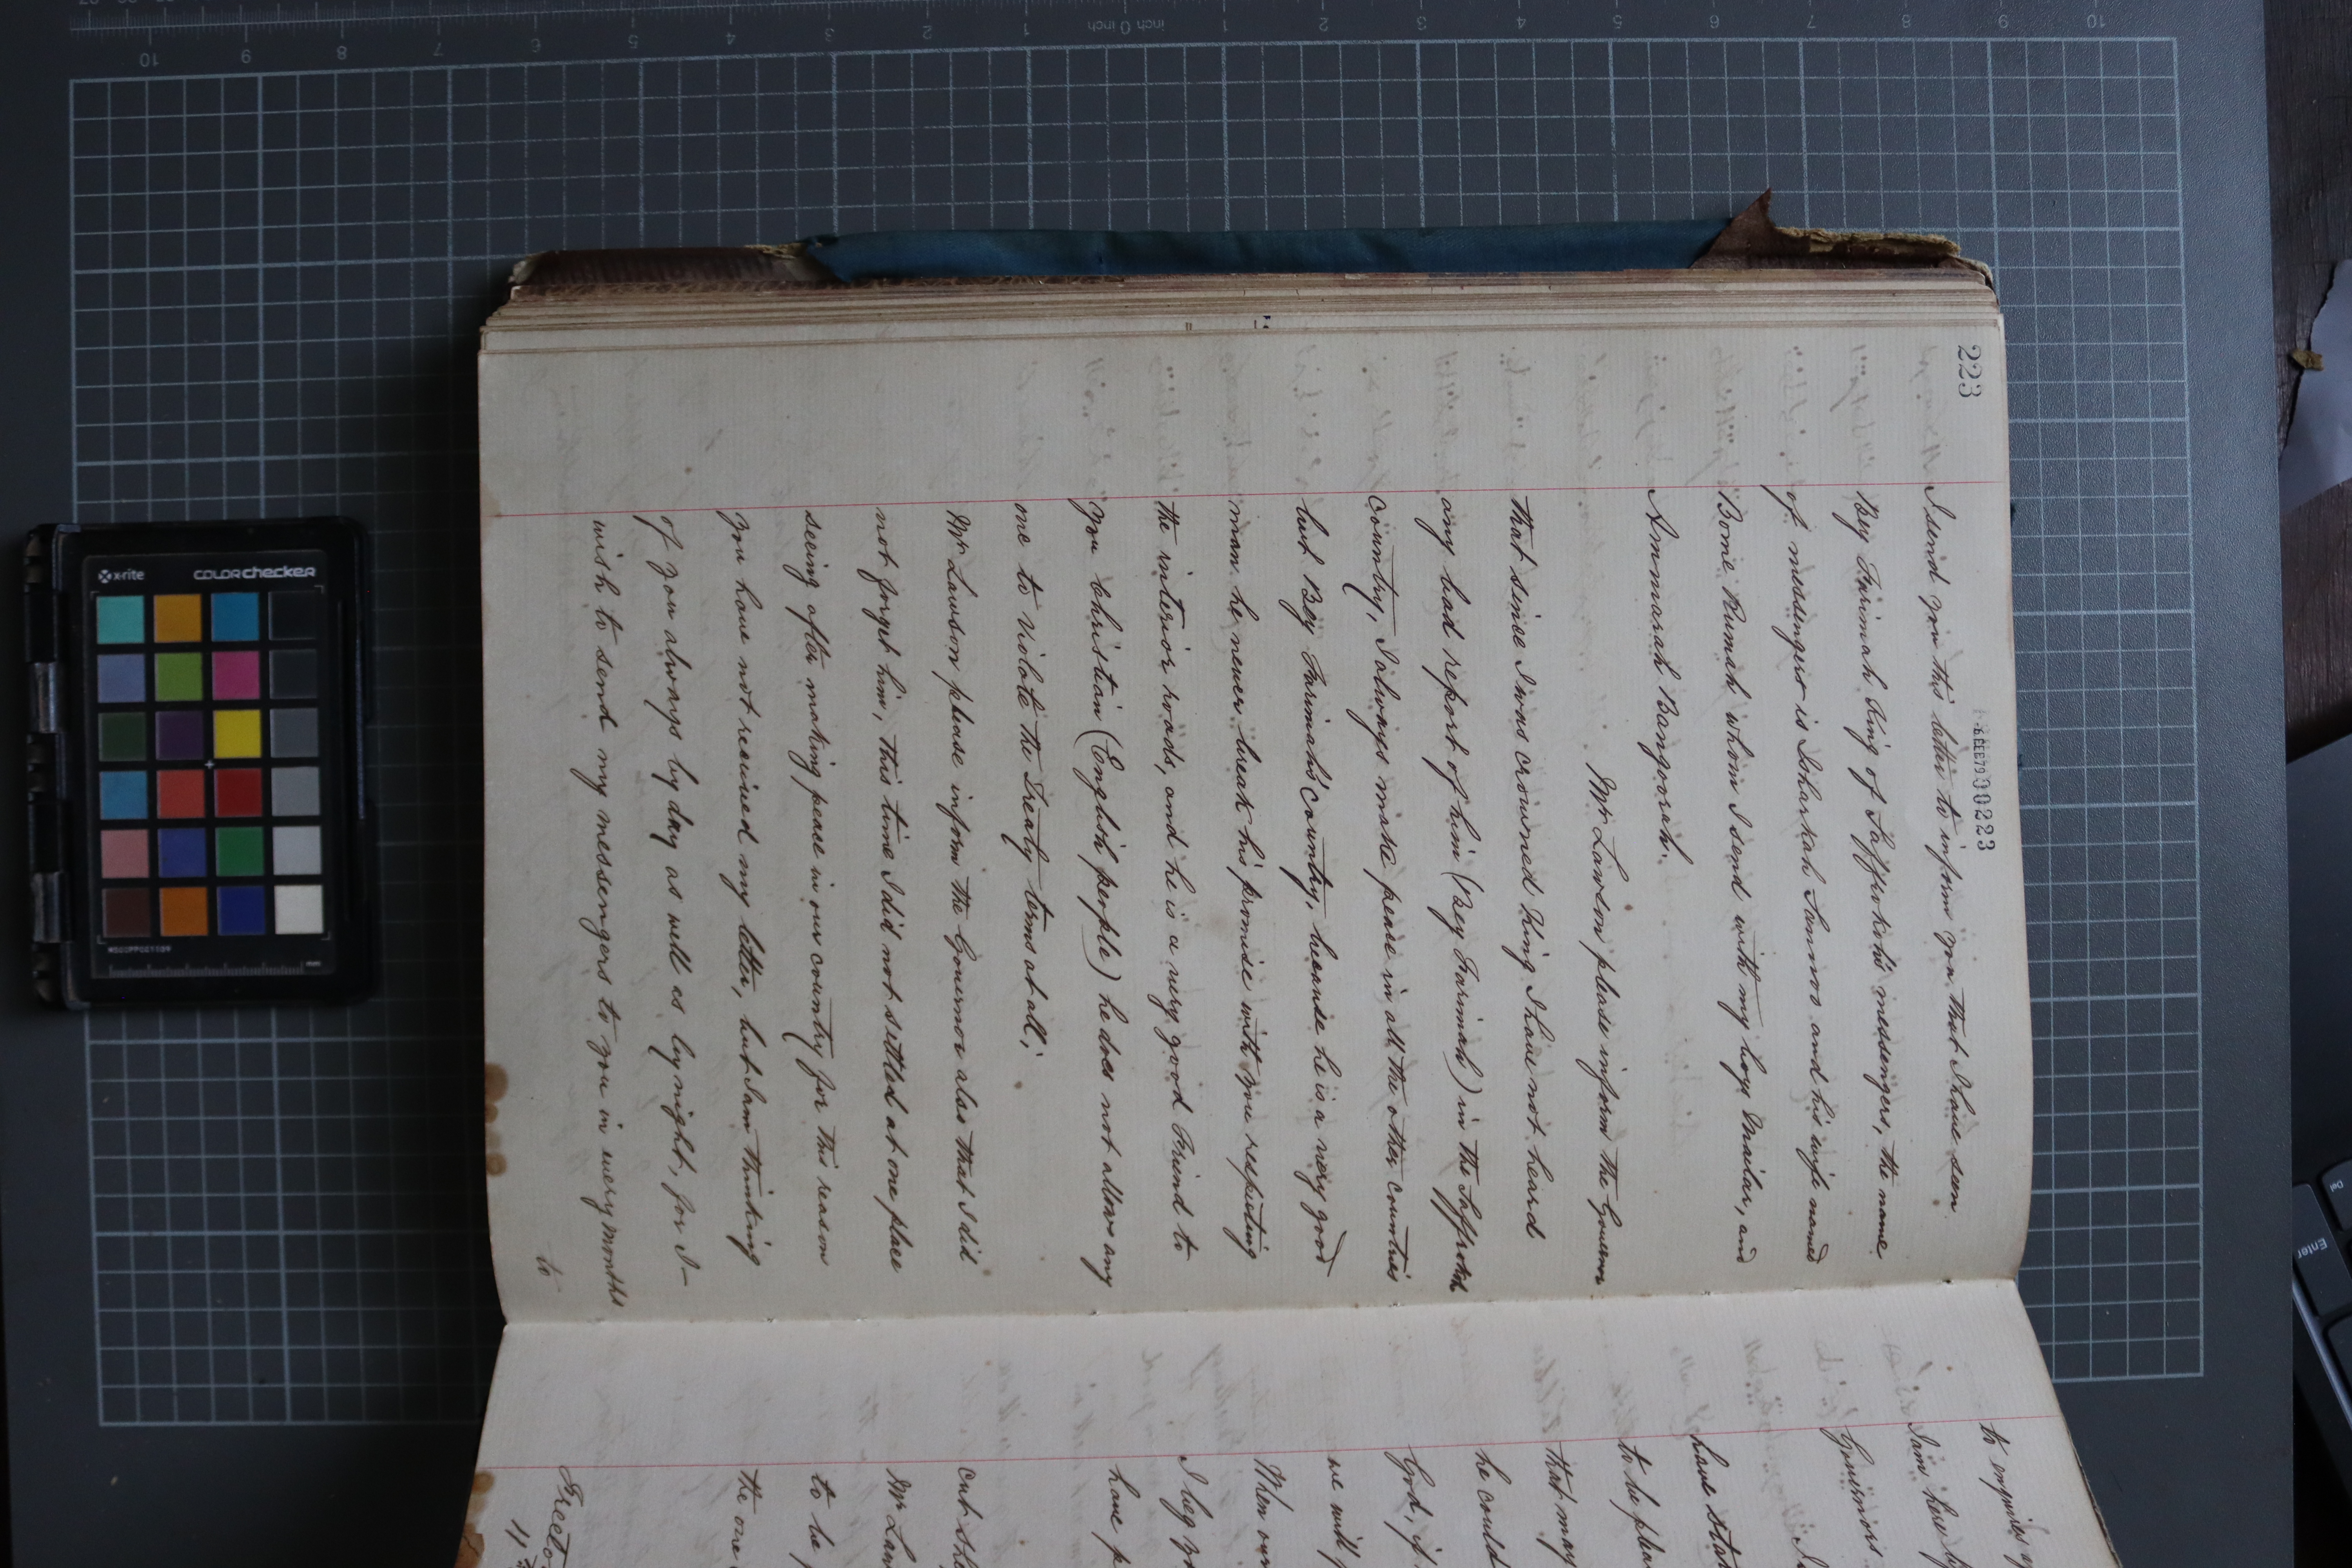 223
00223
I send you this letter to inform you that I have seen
Bey Farimah King of Saffrokoh's messengers, the name
of messengers is Lahakah Sannoo and his wife named
Bomé Rumah whom I send with my boys Mailar, and
Ammarah Bangoorah.
Mr Lawson please inform the Governor
that since I was crowned King I have not heard
any bad report of him (Bey Farimah) in the Saffrokoh
country, I always make peace in all the other countries
but Bey Farimah's country, because he is a very good
man he never break his promise with me respecting
the interior roads, and he is a very good Friend to
you Christian (English people) he does not allow any
one to violate the Treaty terms at all;
Mr Lawson please inform the Governor also that I did
not forget him, this time I did not settled at one place
seeing after making peace in our country for this reason
you have not received my letter, but I am thinking
of you always by day as well as by night, for I
wish to send my messengers to you in every months
to
to enquire
I am here
Governor
have
to be
that may
he could
God, if
we will
When our
I beg
have
Mr
to be
the one
x-rite
colorchecker
MSCCPPCC1109
inch
10 9 8 7 6 5 4 3 2 1 0 1 2 3 4 5 6 7 8 9 10
Enter
Del